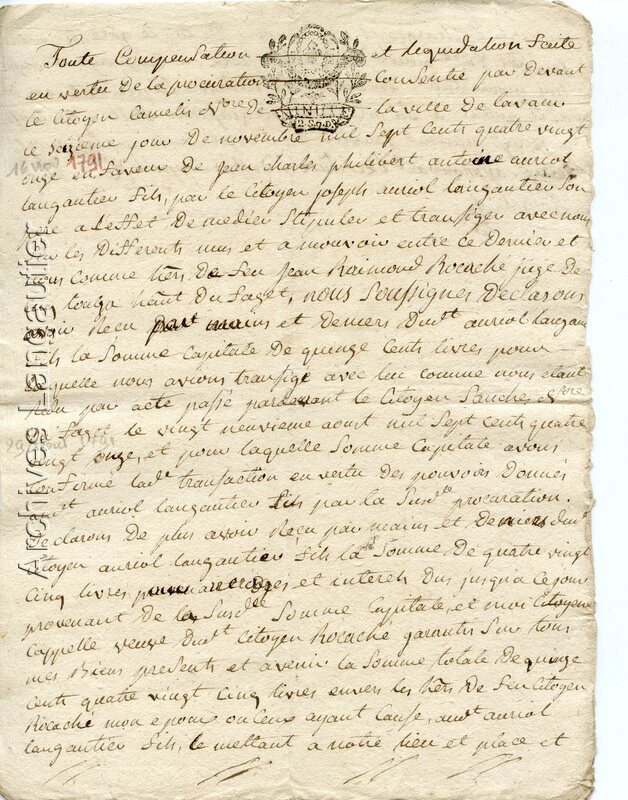 Toute Compensation et liquidation faite
en vertu de la procuration consentie par devant
le citoyen Camelis Nore de la ville de lavaur
le seizieme jour de novembre mil sept cents quatre vingt
onze en faveur de jean charles philibert antoine auriol
langautier fils, par le citoyen joseph auriol langautier son
a leffet de medier stipuler et transiger avec nous
les differents mus et a mouvoir entre ce dernier et
nous comme hers de feu jean Raimond Rocache juge de
haut du faget, nous soussignés declarons
avoir Reçu par mains et deniers dudt auriol langau
fils la somme capitale de quinze cents livres pour
laquelle nous avions transigé avec lui comme nous etant
par acte passé pardevant le Citoyen Nore
du faget le vingt neuvieme aoust mil sept cents quatre
vingt onze, et pour laquelle somme capitale avons
confirmé lade transaction en vertu des pouvoirs donnés
auriol langautier fils par la susde procuration.
declarons de plus avoir Reçu par mains et deniers dudt
Citoyen auriol langautier fils la somme de quatre vingt
cinq livres et interets dus jusqu'a ce jour
provenant de la susde somme capitale, et moi Citoyene
Cappelle veuve dudt citoyen Rocache garantis sur tous
mes biens presents et avenir la somme totale de quinze
cents quatre vingt cinq livres envers les hers de feu Citoyen
Rocaché mon epoux ou leurs ayant cause, audt auriol
langautier fils, le mettant a notre lieu et place et
16 nov 1791
Archives Lengautier
MINUT
2. S. 9. D.